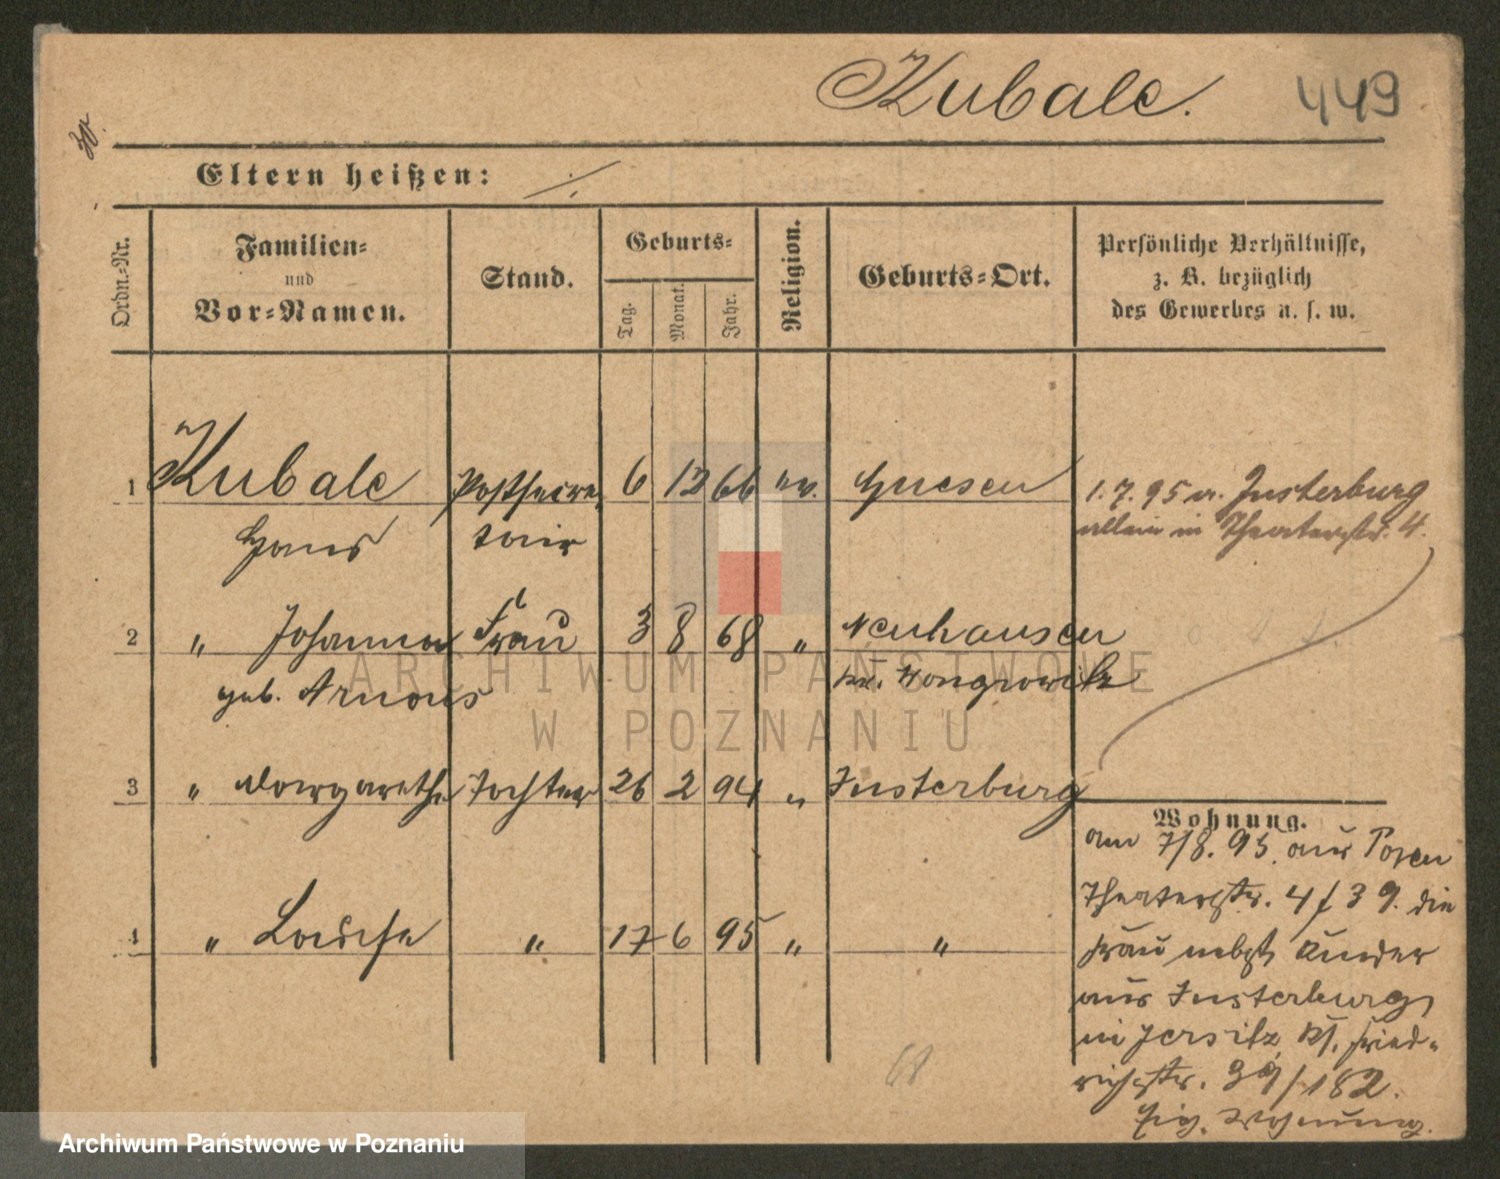 Kubale.
449
Eltern heißen: ./.
Ordn.-Nr.
Familien-
und
Vor-Namen.
Stand.
Geburts-
Tag.
Monat.
Jahr.
Religion.
Geburts-Ort.
Persönliche Verhältnisse,
z. B. bezüglich
des Gewerbes u. s. w.
1 Kubale Postsecre- 6 12 66 ev. Gnesen 1.7.95 v. Insterburg
Hans tair allein in Theaterstr. 4.
2 " Johanna Frau 3 8 68 " Neuhausen
geb. Arnous Kr. Wongrowitz
3 " Margarethe Tochter 26 2 94 " Insterburg
Wohnung.
am 7/8.95. aus Posen
Theaterstr. 4 / 39. die
4 " Louise " 17 6 95 " "
Frau nebst Kinder
aus Insterburg
in Jersitz, Kl. Fried-
richstr. /182.
Eig. Wohnung.
68
ARCHIWUM PAŃSTWOWE
W POZNANIU
Archiwum Państwowe w Poznaniu